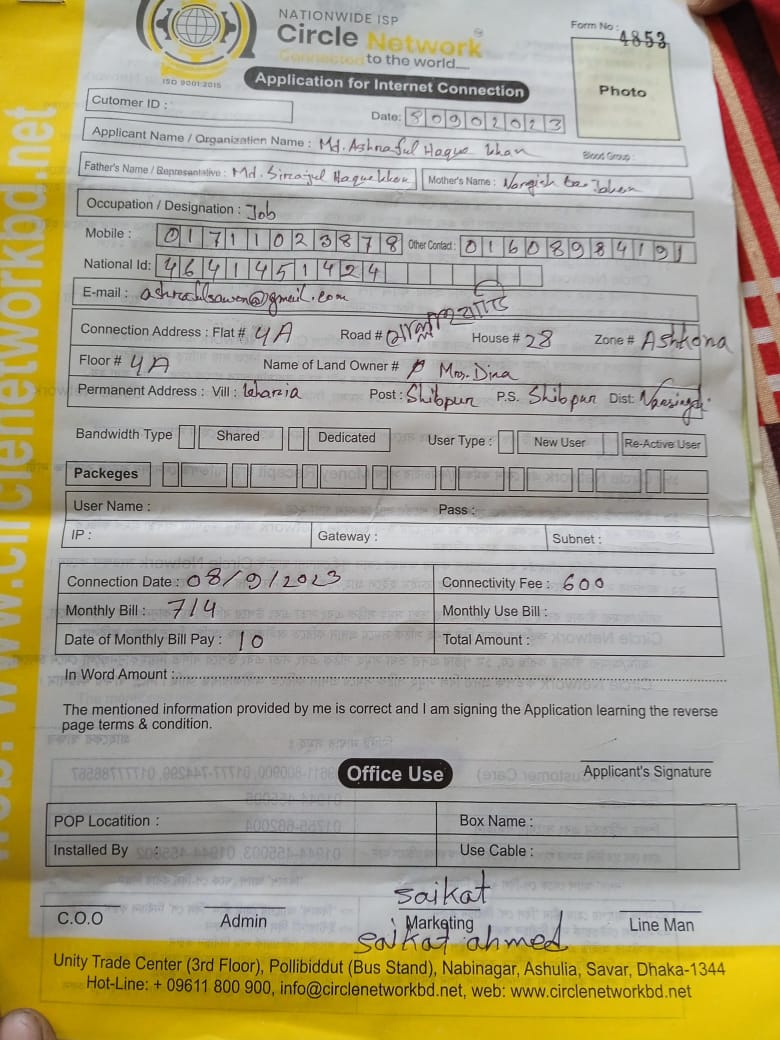 NATIONWIDE ISP
Circle Network
Connected to the world....
ISO 9001:2015
Form No : 4853
Application for Internet Connection
Photo
Cutomer ID :
Date: 8 0 9 0 2 0 2 3
Applicant Name / Organization Name : Md. Ashraful Haque Khan Blood Group :
Father's Name / Representative : Md. Sirajul Haque Khan Mother's Name : Nargish Jahan
Occupation / Designation : Job
Mobile : 01711023878 Other Contact : 01608984191
National Id: 4641451424
E-mail : @gmail.com
Connection Address : Flat # 4A Road # House # 28 Zone # Ashkona
Floor # 4A Name of Land Owner # Mrs. Dina
Permanent Address : Vill : Post : Shibpur P.S. Shibpur Dist: Narsingdi
Bandwidth Type Shared Dedicated User Type : New User Re-Active User
Packeges
User Name : Pass :
IP : Gateway : Subnet :
Connection Date : 08/9/2023 Connectivity Fee : 600
Monthly Bill : 714 Monthly Use Bill :
Date of Monthly Bill Pay : 10 Total Amount :
In Word Amount :
The mentioned information provided by me is correct and I am signing the Application learning the reverse
page terms & condition.
Office Use
Applicant's Signature
POP Locatition : Box Name :
Installed By : Use Cable :
saikat
C.O.O Admin Marketing Line Man
saikat ahmed
Unity Trade Center (3rd Floor), Pollibiddut (Bus Stand), Nabinagar, Ashulia, Savar, Dhaka-1344
Hot-Line: + 09611 800 900, info@circlenetworkbd.net, web: www.circlenetworkbd.net
web: www.circlenetworkbd.net